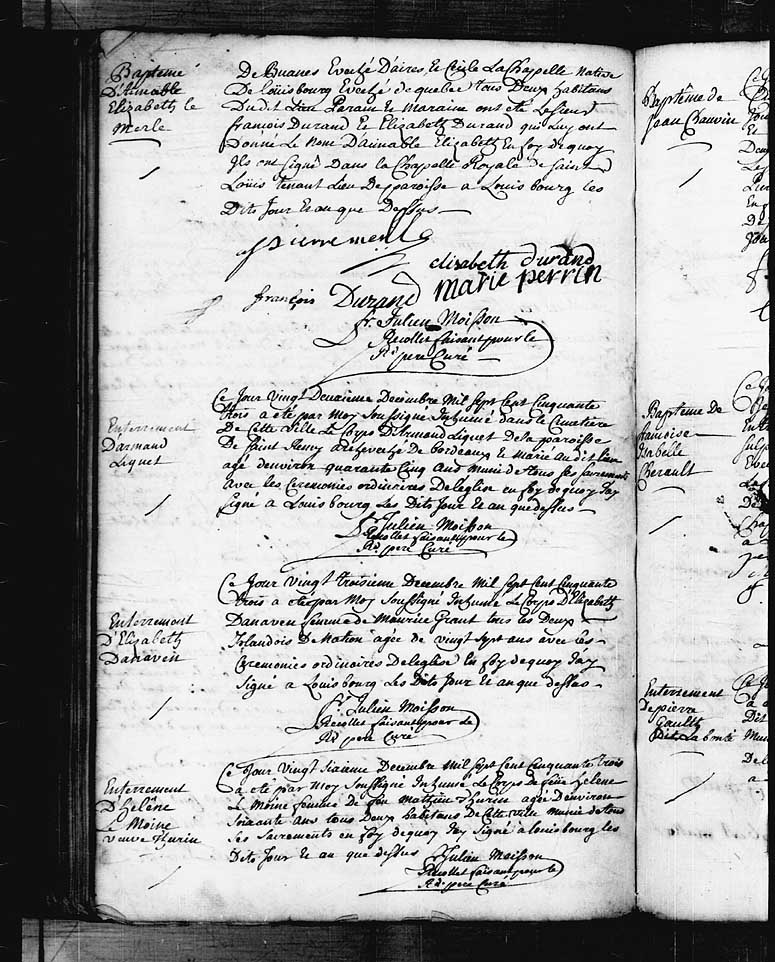 Bapteme
D'Aimable
Elizabeth le
Merle
De Buanes Eveché D'aires Et Cecile La Chapelle native
De Louisbourg Eveché de quebec tous Deux habitans
Dudit Lieu Parain Et Maraine ont été Le Sieur
francois Durand Et Elizabeth Durand qui Luy ont
Donné Le Nom D'aimable Elizabeth En foy De quoy
Ils ont Signé Dans la Chapelle Royale de Saint
Louis tenant Lieu De paroisse a Louisbourg les
Dits Jour Et an que Dessus
pierre merle
elisabeth durand
françois Durand marie perrin
fr. Julien Moisson
Recollet faisant pour le
Rd. pere Curé
Enterrement
D'armand
Liquet
Ce Jour vingt Deuxieme Decembre Mil Sept Cent Cinquante
trois a eté par Moy Soussigné Inhumé dans le Cimetiere
De Cette Ville Le Corps D'Armond Liquet De la paroisse
De Saint Remy archeveché De bordeaux Et Marié au dit lieu
agé denviron quarante Cinq ans Munie de tous Ses Sacrements
avec les Ceremonies ordinaires De leglise en foy de quoy Jay
Signé a Louisbourg Les Dits Jour Et an que dessus
fr. Julien Moisson
Recollet faisant pour le
Rd. pere Curé
Enterrement
D'Elizabeth
Danaven
Ce Jour vingt troisieme Decembre Mil Sept Cent Cinquante
trois a eté par Moy Soussigné Inhumé Le Corps D'Elizabeth
Danaven femme de Maurice Grant tous les Deux
Irlandois De Nation agée de vingt Sept ans avec les
Ceremonies ordinaires De leglise En foy de quoy Jay
Signé a Louisbourg Les Dits Jour Et an que dessus
fr. Julien Moisson
Recollet faisant pour le
Rd. pere Curé
Enterrement
D'helène
Le Moine
veuve Hurin
Ce Jour vingt Sixieme Decembre Mil Sept Cent Cinquante trois
a eté par Moy Soussigné Inhumé Le Corps De helene
Le Moine femme de feu Mathieu Hurin agée Denviron
Soixante ans tous Deux habitans De Cette ville munie de tous
Ses Sacrements en foy de quoy Jay Signé a louisbourg les
Dits Jour Et an que dessus
fr. Julien Moisson
Recollet faisant pour le
Rd. pere Curé
Baptême de
Jean Chauvin
Bapteme De
francoise
Isabelle
Cherault
Enterrement
De pierre
Gaults
Dit La bonté